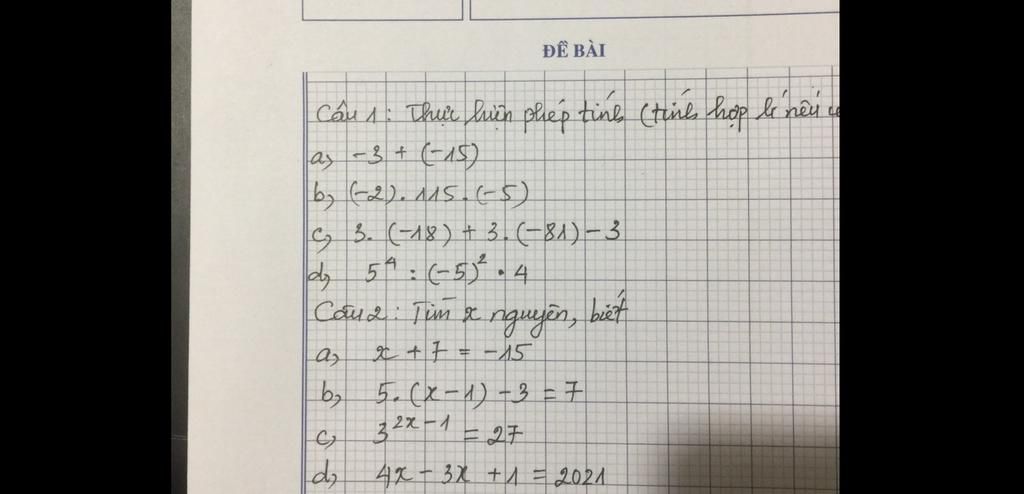 ĐỀ BÀI
Câu 1: Thực hiện phép tính (tính hợp lí nếu
a, -3 + (-15)
b, (-2).115.(-5)
c, 3.(-18) + 3.(-81) - 3
d, 5⁴ : (-5)² . 4
Câu 2: Tìm x nguyên, biết
a, x + 7 = -15
b, 5.(x-1) - 3 = 7
c, 3²ˣ⁻¹ = 27
d, 4x - 3x + 1 = 2021